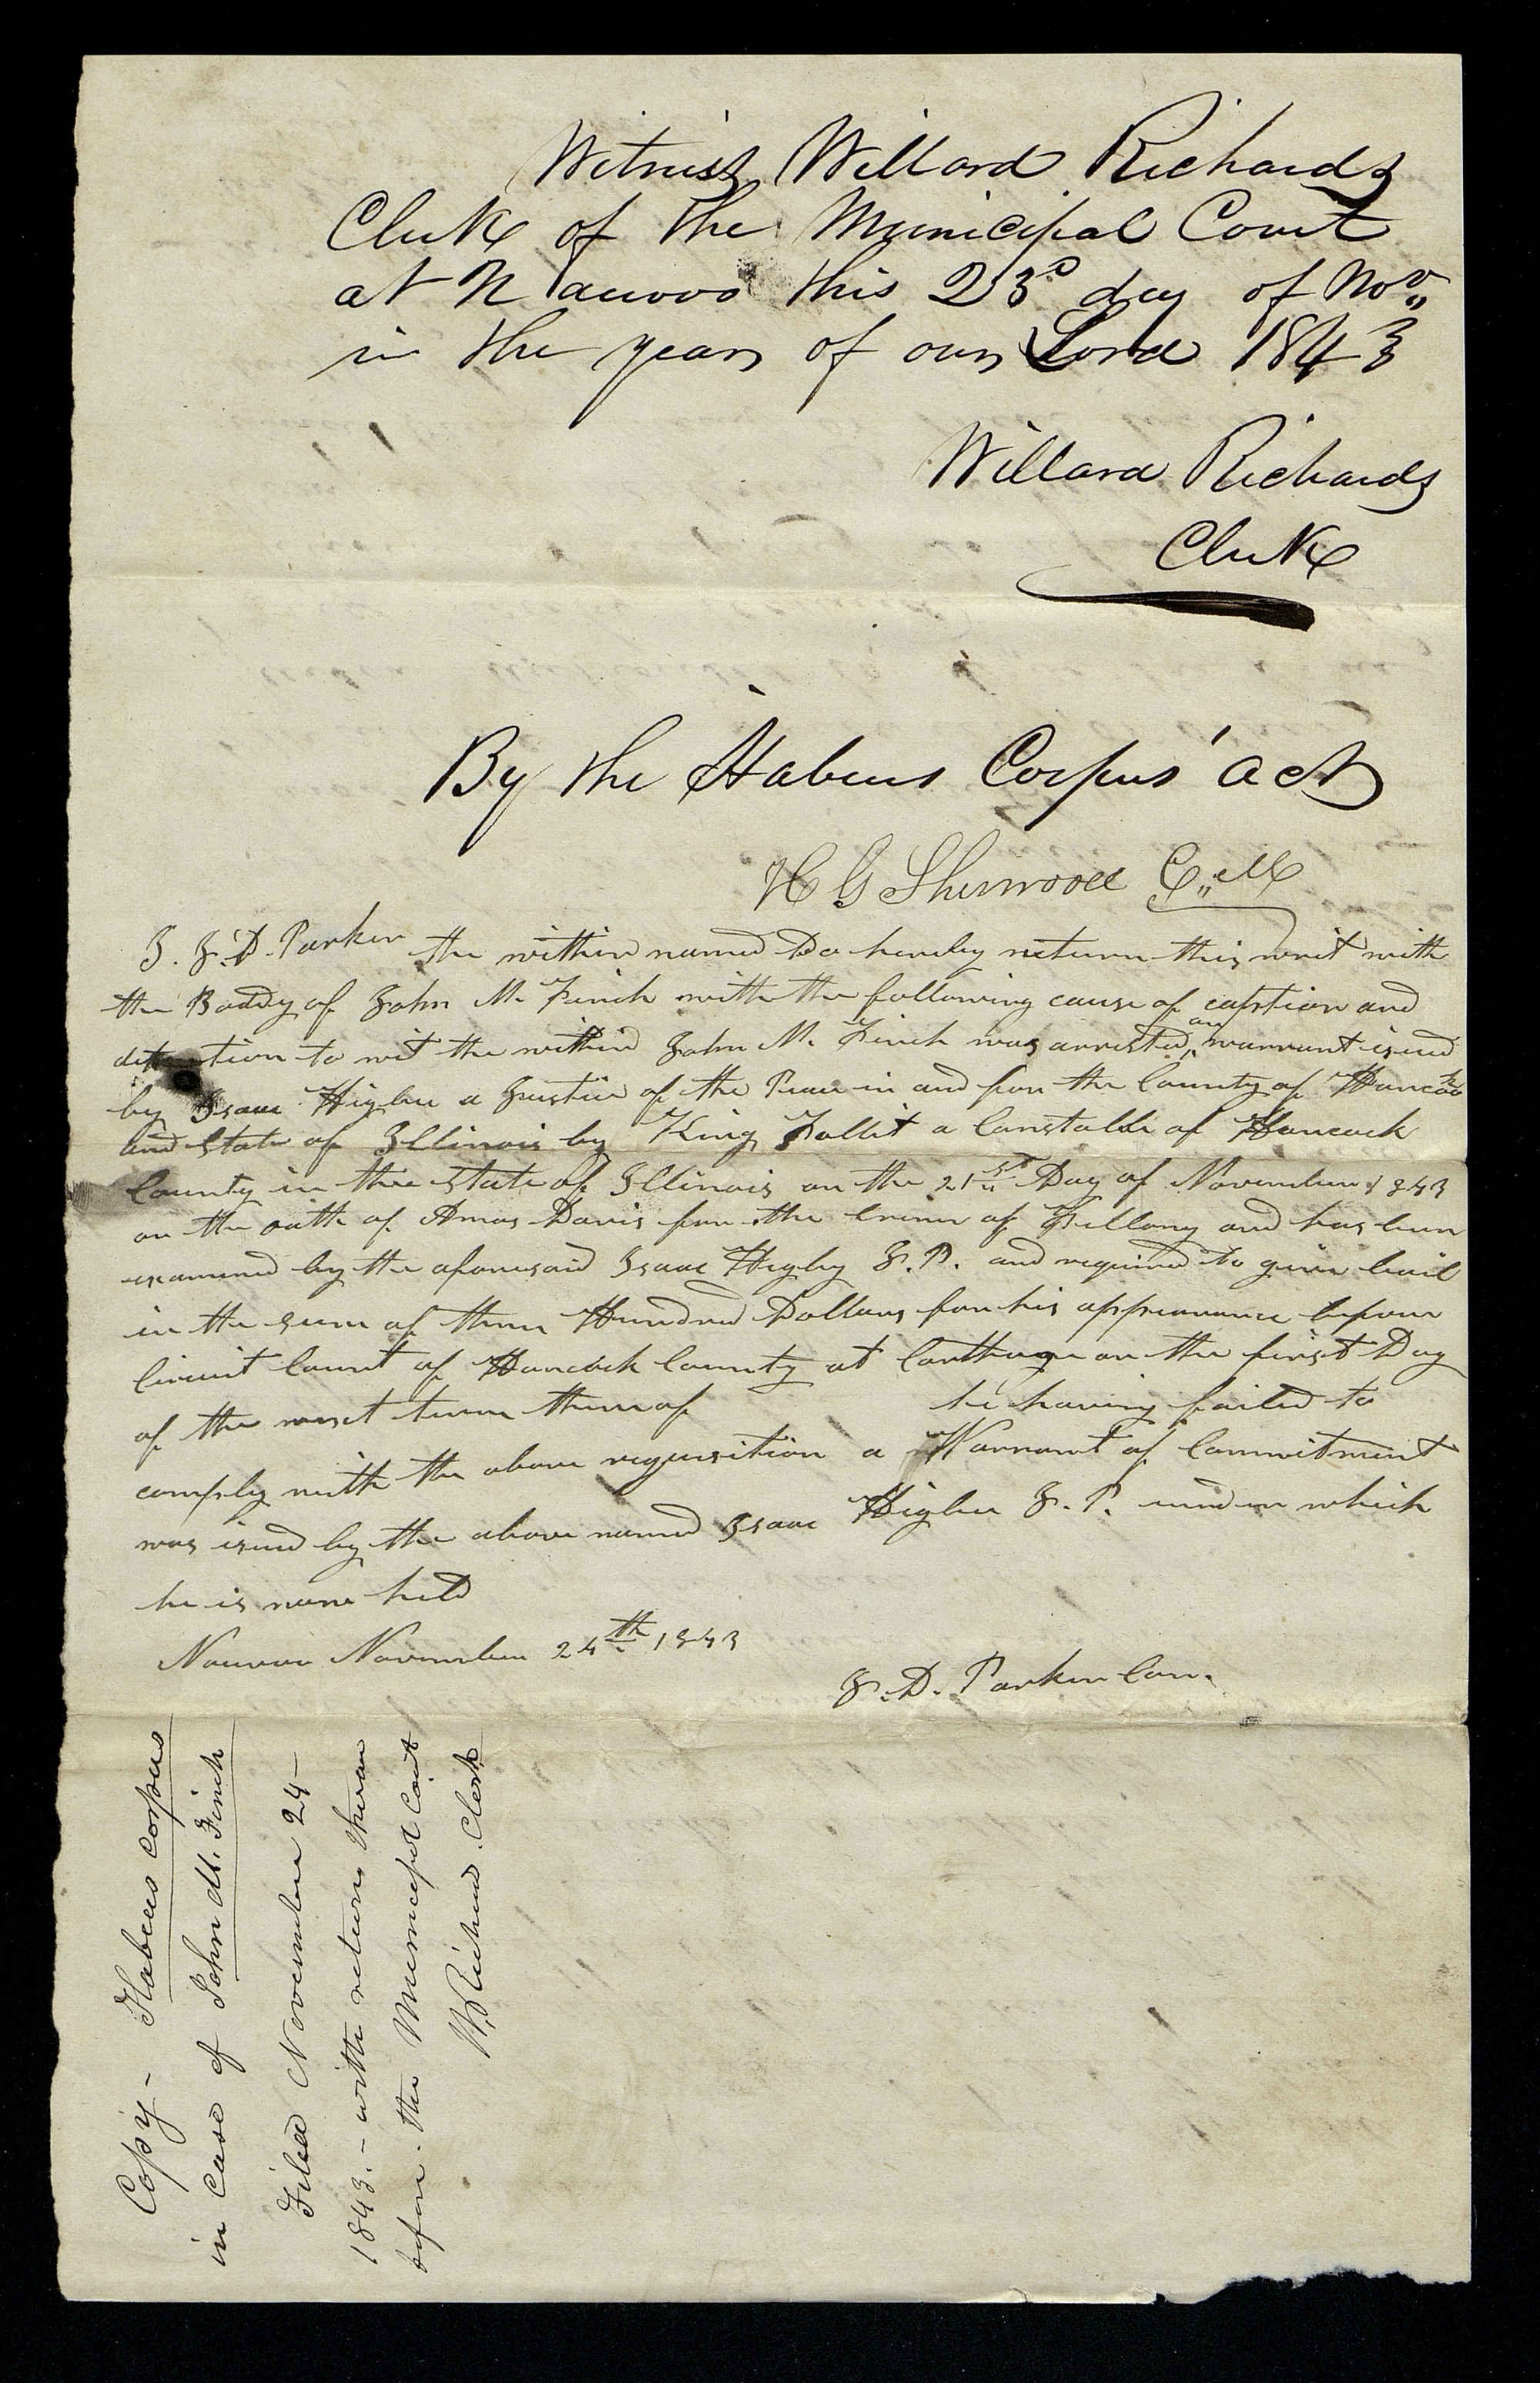 Witness Willard Richards
Clerk of the Municipal Court
at Nauvoo this 23d day of Nov
in the year of our Lord 1843
Willard Richards
Clerk
By the Habeus Corpus act
H G Sherwood C,,M
I. J. D. Parker the within named Do hereby return this writ with
the Boddy of John M. Finch with the following cause of caption and
detention to wit the within John M. Finch was arrested on warrant isued
by Isaac Higbee a Justice of the Peace in and for the County of Hancock
and State of Illinois by King Follit a Constable of Hancock
County in the State of Illinois on the 21st Day of November 1843
on the oath of Amos Davis for the crime of Fellony and has been
examined by the aforesaid Isaac Higby J. P. and required to give bail
in the sum of three Hundred Dollars for his appearance before
Circuit Court of Hancock County at Carthage on the first Day
of the next term thereof he having failed to
comply with the above requisition a Warrant of Commitment
was isued by the above named Isaac Higbee J. P. under which
he is now held
Nauvoo November 24th 1843
J. D. Parker Con.
Copy - Habeus corpus
in case of John M. Finch
Filed November 24-
1843. - with return thereon
before the Municipal Court
W. Richards Clerk